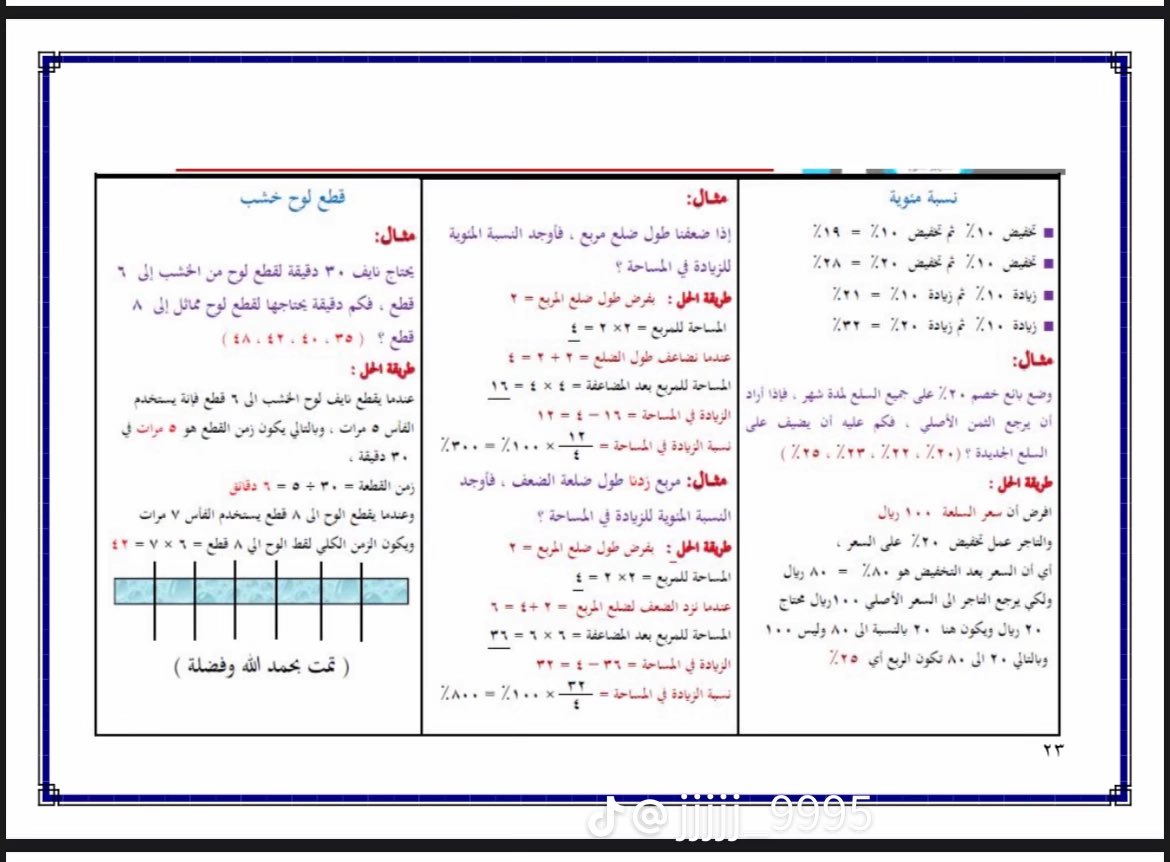 نسبة مئوية
■ تخفيض ١٠٪ ثم تخفيض ١٠٪ = ١٩٪
■ تخفيض ١٠٪ ثم تخفيض ٢٠٪ = ٢٨٪
■ زيادة ١٠٪ ثم زيادة ١٠٪ = ٢١٪
■ زيادة ١٠٪ ثم زيادة ٢٠٪ = ٣٢٪
مثال:
وضع بائع خصم ٢٠٪ على جميع السلع لمدة شهر ، فإذا أراد
أن يرجع الثمن الأصلي ، فكم عليه أن يضيف على
السلع الجديدة ؟ (٢٠٪ ، ٢٢٪ ، ٢٣٪ ، ٢٥٪ )
طريقة الحل :
افرض أن سعر السلعة ١٠٠ ريال
والتاجر عمل تخفيض ٢٠٪ على السعر ،
أي أن السعر بعد التخفيض هو ٨٠٪ = ٨٠ ريال
ولكي يرجع التاجر الى السعر الأصلي ١٠٠ريال محتاج
٢٠ ريال ويكون هنا ٢٠ بالنسبة الى ٨٠ وليس ١٠٠
وبالتالي ٢٠ الى ٨٠ تكون الربع أي ٢٥٪
مثال:
إذا ضعفنا طول ضلع مربع ، فأوجد النسبة المئوية
للزيادة في المساحة ؟
طريقة الحل : بفرض طول ضلع المربع = ٢
المساحة للمربع = ٢× ٢ = ٤
عندما نضاعف طول الضلع = ٢ + ٢ = ٤
المساحة للمربع بعد المضاعفة = ٤ × ٤ = ١٦
الزيادة في المساحة = ١٦ – ٤ = ١٢
نسبة الزيادة في المساحة = ١٢/٤ × ١٠٠٪ = ٣٠٠٪
مثال: مربع زدنا طول ضلعة الضعف ، فأوجد
النسبة المئوية للزيادة في المساحة ؟
طريقة الحل : بفرض طول ضلع المربع = ٢
المساحة للمربع = ٢× ٢ = ٤
عندما نزد الضعف لضلع المربع = ٢ +٤ = ٦
المساحة للمربع بعد المضاعفة = ٦ × ٦ = ٣٦
الزيادة في المساحة = ٣٦ – ٤ = ٣٢
نسبة الزيادة في المساحة = ٣٢/٤ × ١٠٠٪ = ٨٠٠٪
قطع لوح خشب
مثال:
يحتاج نايف ٣٠ دقيقة لقطع لوح من الخشب إلى ٦
قطع ، فكم دقيقة يحتاجها لقطع لوح مماثل إلى ٨
قطع ؟ ( ٣٥ ، ٤٠ ، ٤٢ ، ٤٨ )
طريقة الحل :
عندما يقطع نايف لوح الخشب الى ٦ قطع فإنة يستخدم
الفأس ٥ مرات ، وبالتالي يكون زمن القطع هو ٥ مرات في
٣٠ دقيقة ،
زمن القطعة = ٣٠ ÷ ٥ = ٦ دقائق
وعندما يقطع الوح الى ٨ قطع يستخدم الفأس ٧ مرات
ويكون الزمن الكلي لقط الوح الي ٨ قطع = ٦ × ٧ = ٤٢
( تمت بحمد الله وفضلة )
٢٣
@jjjjjj_9995